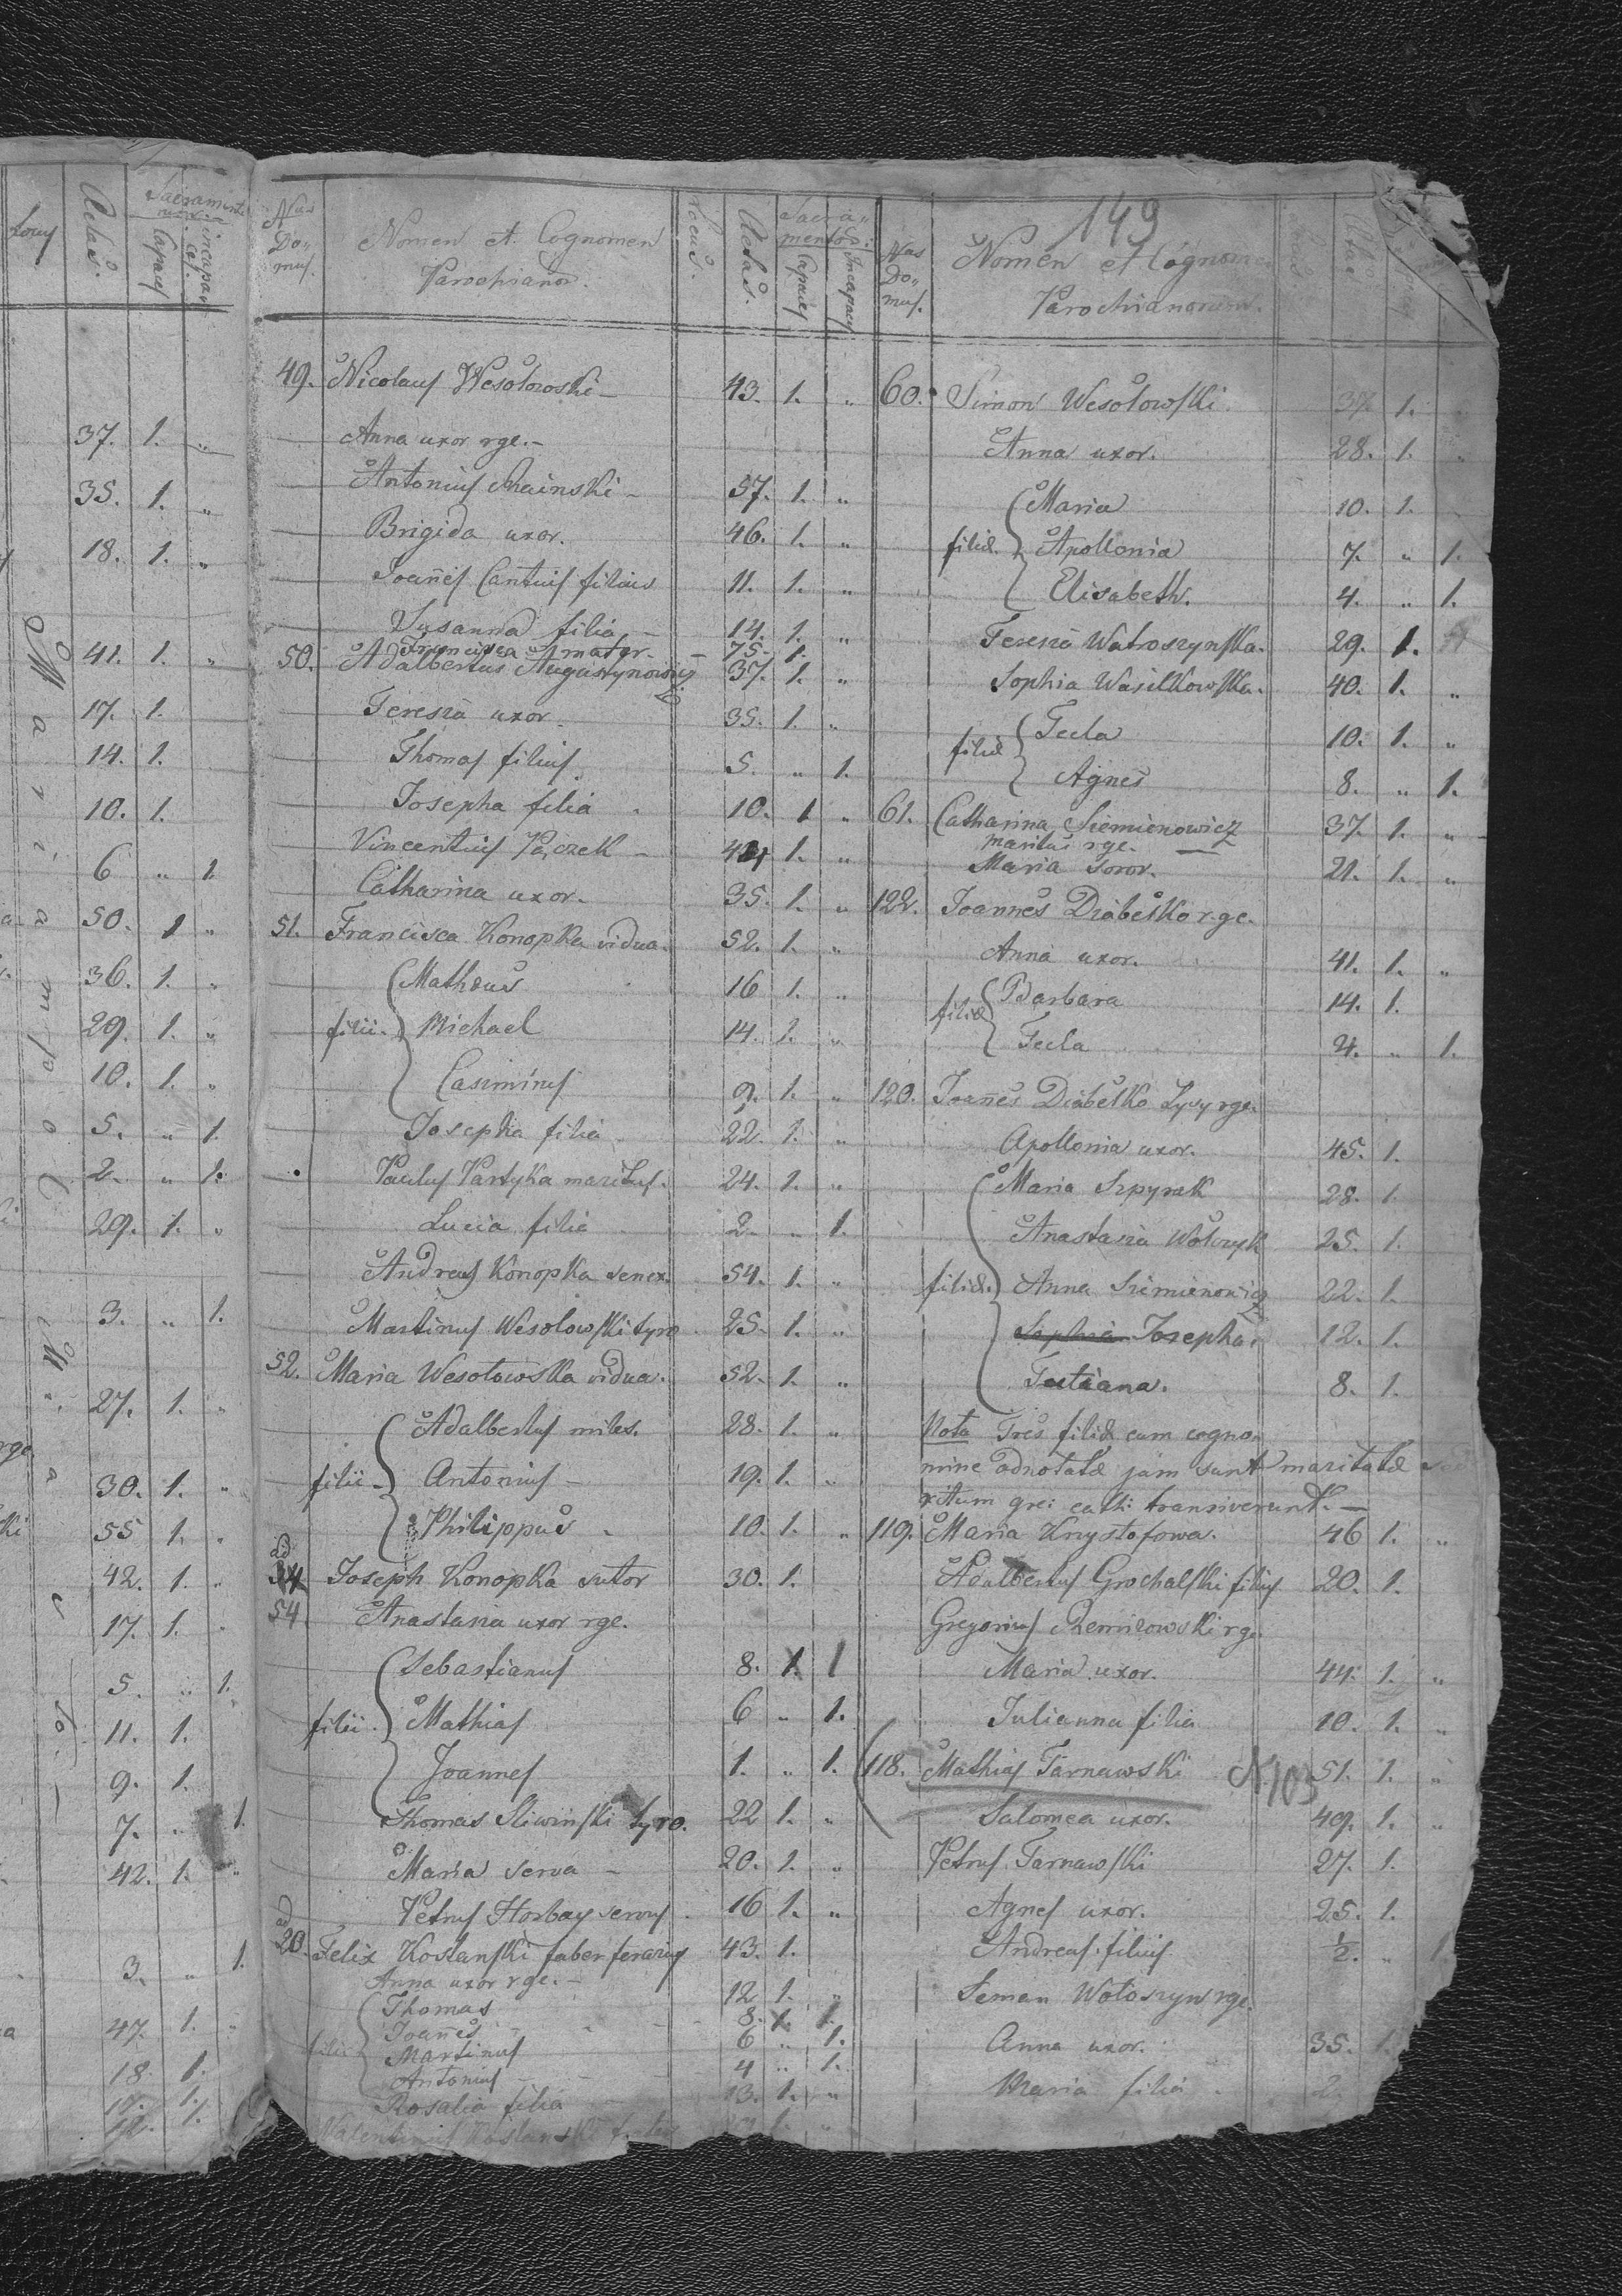 locus
Aetas.
Sacramento
Capaces
incapaces
37. 1. "
35. 1. "
18. 1. "
41. 1. "
17. 1.
14. 1.
10. 1.
6 " 1.
50. 1 "
36. 1. "
29. 1. "
10. 1. "
5. " 1.
2. " 1.
29. 1. "
3. " 1.
27. 1. "
rge
30. 1. "
55 1. "
42. 1. "
17. 1. "
5. " 1.
11. 1.
9. 1.
7. " 1.
42. 1. "
3. " 1.
47. 1. "
18. 1.
12. 1.
Nus Domus.
Nomen et Cognomen
Parochianor.
Locus.
Aetas.
Sacramentor:
Capaces
Incapaces
49. Nicolaus Wesołowski – 43. 1. "
Anna uxor rge. –
Antonius – 57. 1. "
Brigida uxor. 46. 1. "
Joańes Cantius filius 11. 1. "
Susanna filia – 14. 1. "
Francisca mater. – 75. 1.
50. Adalbertus Augustynowicz 37. 1. "
Teresia uxor. 35. 1. "
Thomas filius 5. " 1.
Josepha filia 10. 1 "
Vincentius Pączek – 1. "
Catharina uxor. 35. 1. "
51. Francisca Konopka vidua. 52. 1. "
Mathæus 16 1. "
filii. Michael 14. 1. "
Casimirus 9. 1. "
Josepha filia 22. 1. "
Paulus Partyka maritus. 24. 1. "
Lucia filia 2. " 1.
Andreas Konopka senex. 54. 1. "
Martinus Wesołowski tyro 25. 1. "
52. Maria Wesołowska vidua. 52. 1. "
Adalbertus miles. 28. 1. "
filii – Antonius – 19. 1. "
Philippus 10. 1. "
ad 54 Joseph Konopka sutor 30. 1.
Anastasia uxor rge.
Sebastianus 8. 1. 1
filii. Mathias 6 " 1.
Joannes 1. " 1.
Thomas Sliwinski tyro. 22 1. "
Maria serva – 20. 1. "
Petrus Horbay servus 16 1. "
ad 20. Felix Koslanski faber ferarius 43. 1.
Anna uxor rge. –
Thomas 12 1. "
Joańes 8. 1. 1.
filii Martinus 6 " 1.
Antonius 4 " 1.
Rosalia filia 13. 1. "
Valentinus Koslanski
149
Nus Domus.
Nomen et Cognomen
Parochianorum.
60. Simon Wesołowski 37. 1.
Anna uxor. 28. 1. "
Maria 10. 1.
filiæ. Apollonia 7. " 1.
Elisabeth. 4. " 1.
Teresia Watroszynska. 29. 1.
Sophia Wasilkowska. 40. 1. "
Tecla 10. 1. "
filiæ Agnes 8. " 1.
61. Catharina Siemienowicz 37. 1. "
maritus rge. –
Maria soror. 21. 1. "
122. Joannes Diabełko rge.
Anna uxor. 41. 1. "
Barbara 14. 1.
filiæ Tecla 4. " 1.
120. Joańes Diabełko Łysy rge.
Apollonia uxor. 45. 1.
Maria Szpyrak 28. 1.
Anastasia Wołczyk 25. 1.
filiæ. Anna Siemienowicz 22. 1.
Sophia Josepha 12. 1.
Tatiana. 8. 1.
Nota Tres filiæ cum cogno-
mine adnotatæ jam sunt maritatæ
ritum gre: cath: transiverunt. –
119. Maria Krzysztofowa. 46 1. "
Adalbertus Grochalski filius 20. 1.
Gregorius Remizowski rge.
Maria uxor. 44. 1. "
Julianna filia 10. 1. "
118. Mathias Tarnawski N. 103 51. 1. "
Salomea uxor. 49. 1. "
Petrus Tarnawski 27. 1.
Agnes uxor. 25. 1.
Andreas filius ½. " 1
Seman Wołoszyn rge.
Anna uxor. 35. 1.
Maria filia 2.